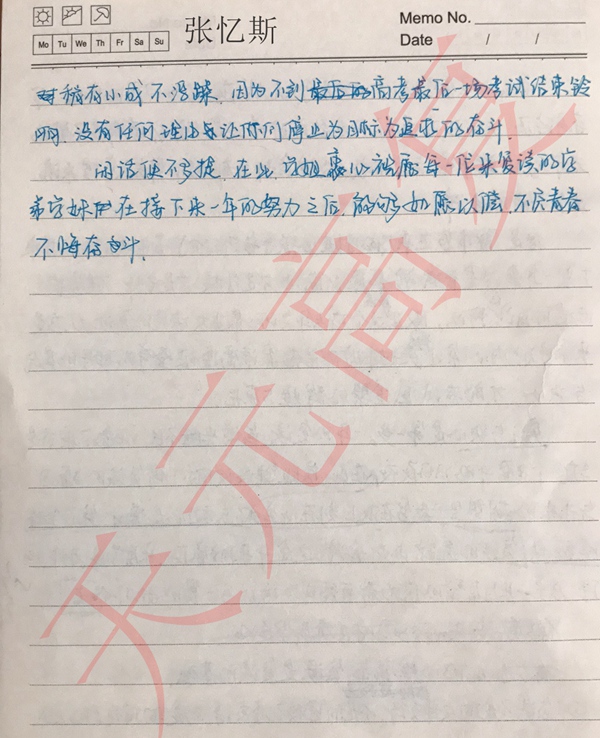 Memo No.
Mo Tu We Th Fr Sa Su
张忆斯
Date / /
时稍有小成不浮躁，因为不到最后的高考最后一场考试结束铃
响，没有任何理由去让你们停止为目标为是的奋斗。
闲话便不多提，在此，学姐衷心祝愿每一位来复读的学
弟学妹在接下来一年的努力之后，能够如愿以偿，不负青春
不悔奋斗。
天元高复